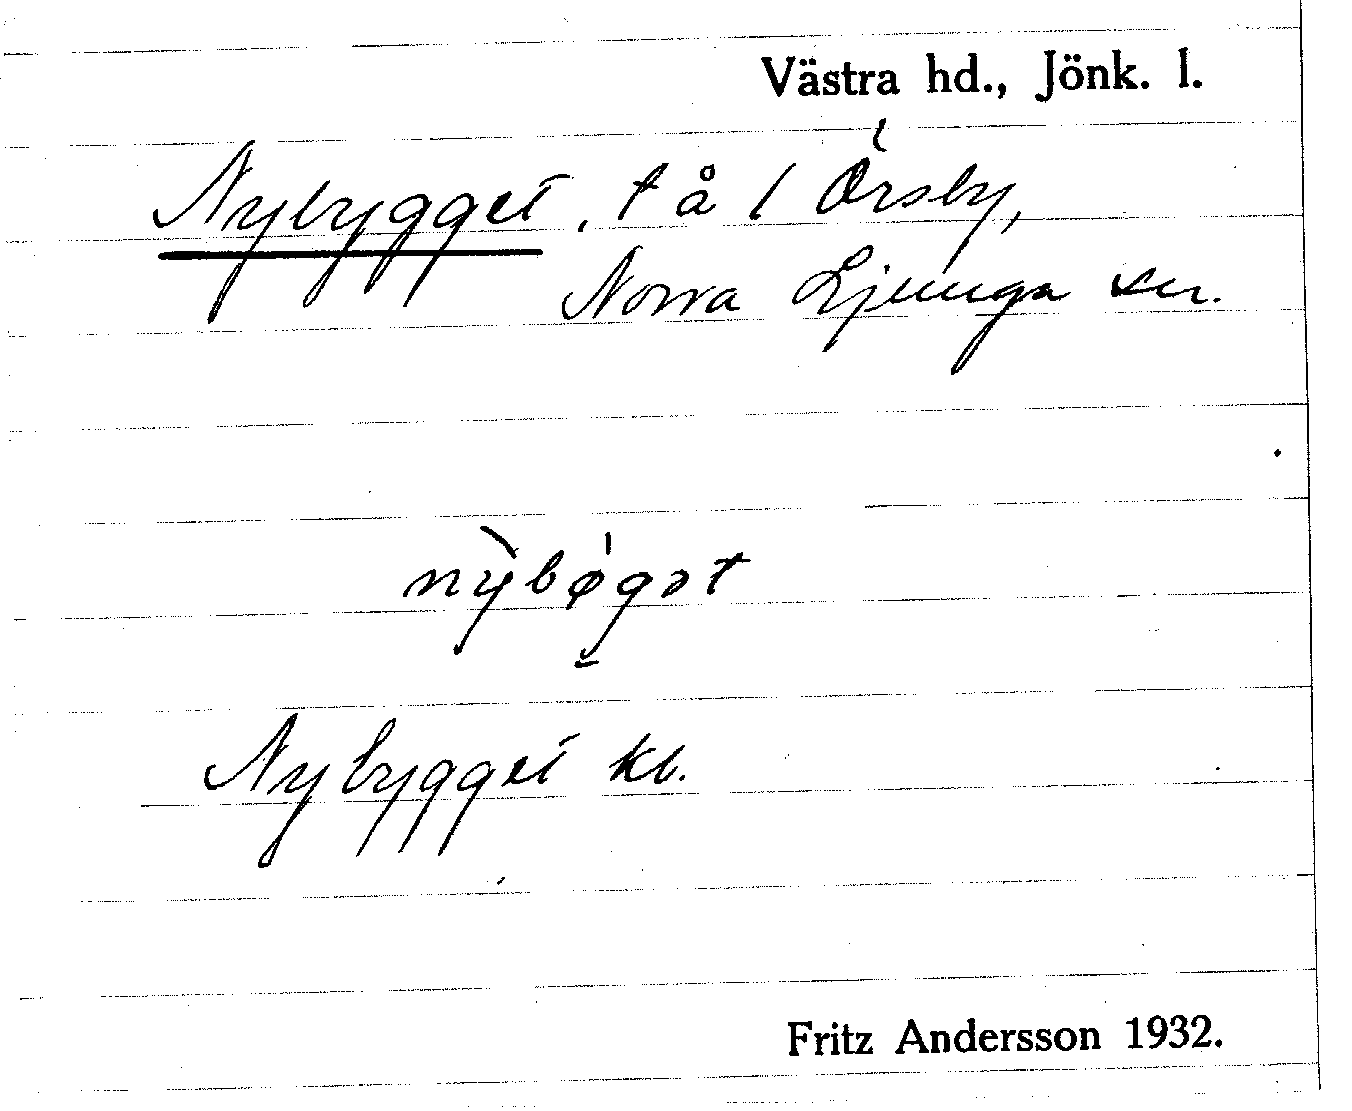 Västra hd., Jönk. l.
Nybygget, t å 1 Örsby,
Norra Ljunga sn.
nỳbø̍gət
Nybygget kb.
Fritz Andersson 1932.